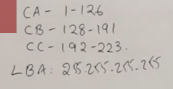 CA - 1-126
CB - 128-191
CC - 192-223.
LBA: 255.255.255.255